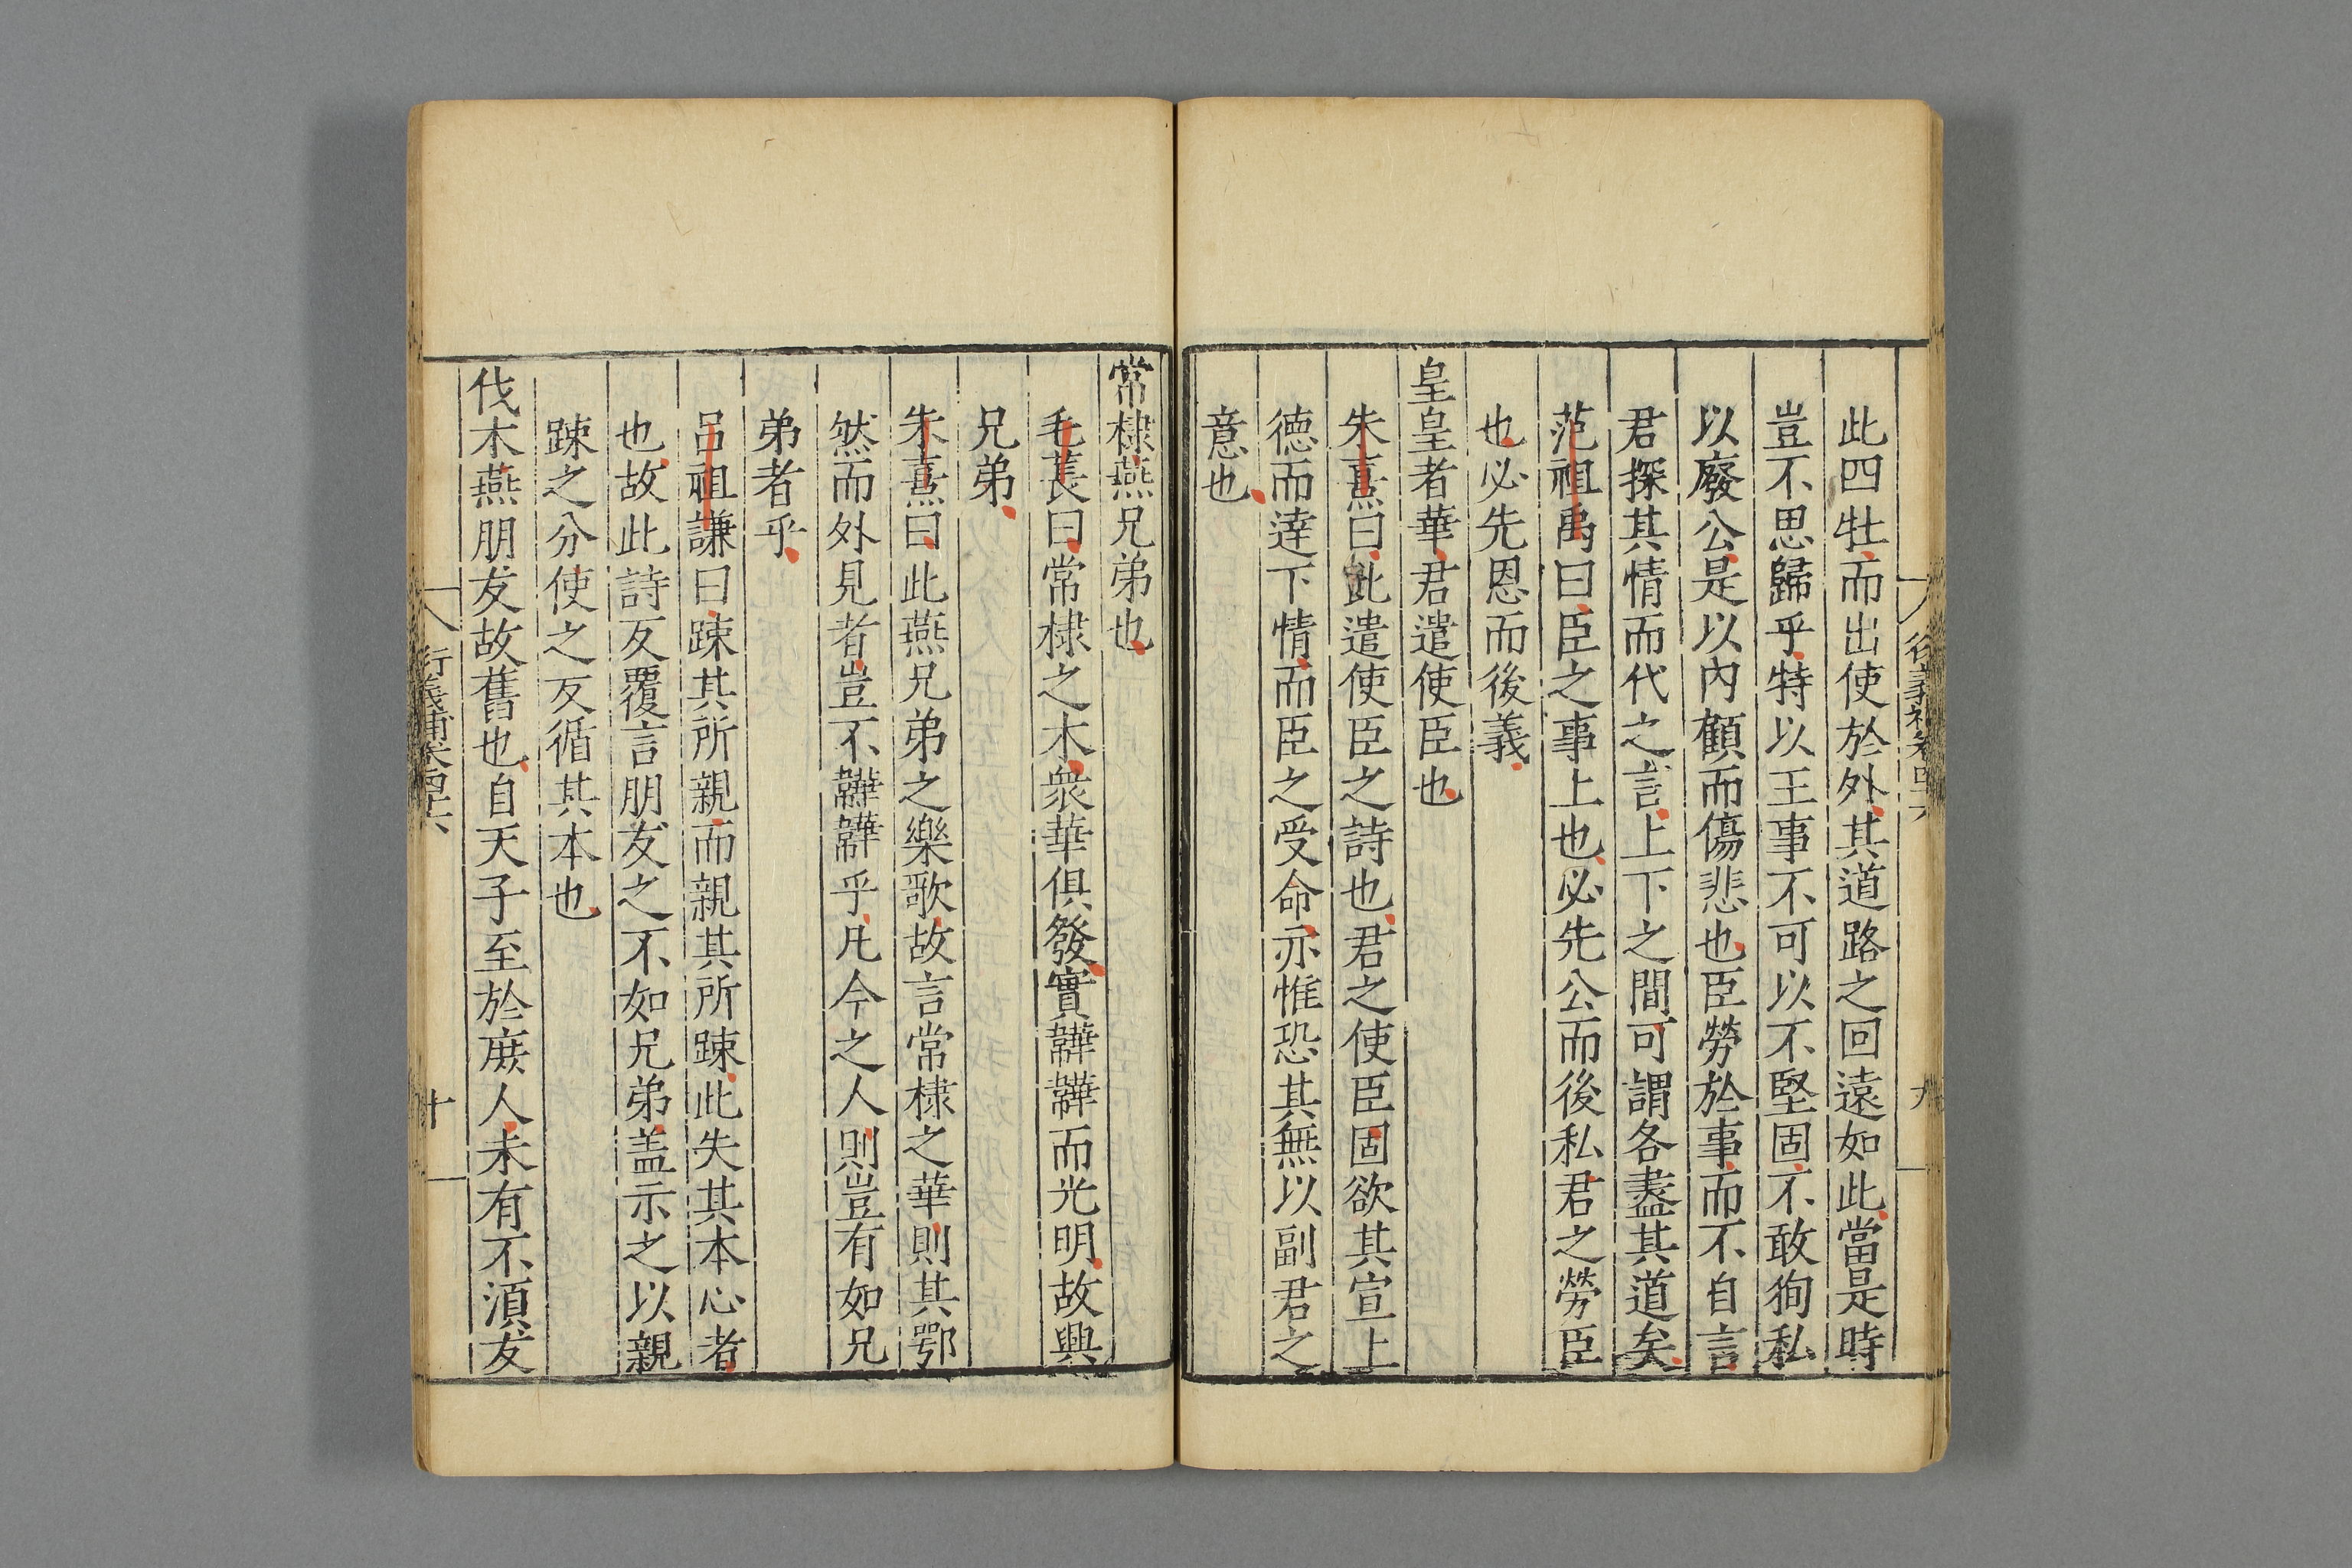 此四牡而出使於外其道路之回遠如此當是時
豈不思歸乎特以王事不可以不堅固不敢徇私
以廢公是以內顧而傷悲也臣勞於事而不自言
君探其情而代之言上下之間可謂各盡其道矣
范祖禹曰臣之事上也必先公而後私君之勞臣
也必先恩而後義
皇皇者華君遣使臣也
朱熹曰此遣使臣之詩也君之使臣固欲其宣上
德而逹下情而臣之受命亦惟恐其無以副君之
意也
常棣燕兄弟也
毛萇曰常棣之木衆華俱發實韡韡而光明故興
兄弟
朱熹曰此燕兄弟之樂歌故言常棣之華則其鄂
然而外見者豈不韡韡乎凡今之人則豈有如兄
弟者乎
呂祖謙曰踈其所親而親其所踈此失其本心者
也故此詩反覆言朋友之不如兄弟盖示之以親
踈之分使之反循其本也
伐木燕朋友故舊也自天子至於庶人未有不湏友
行義補卷
十